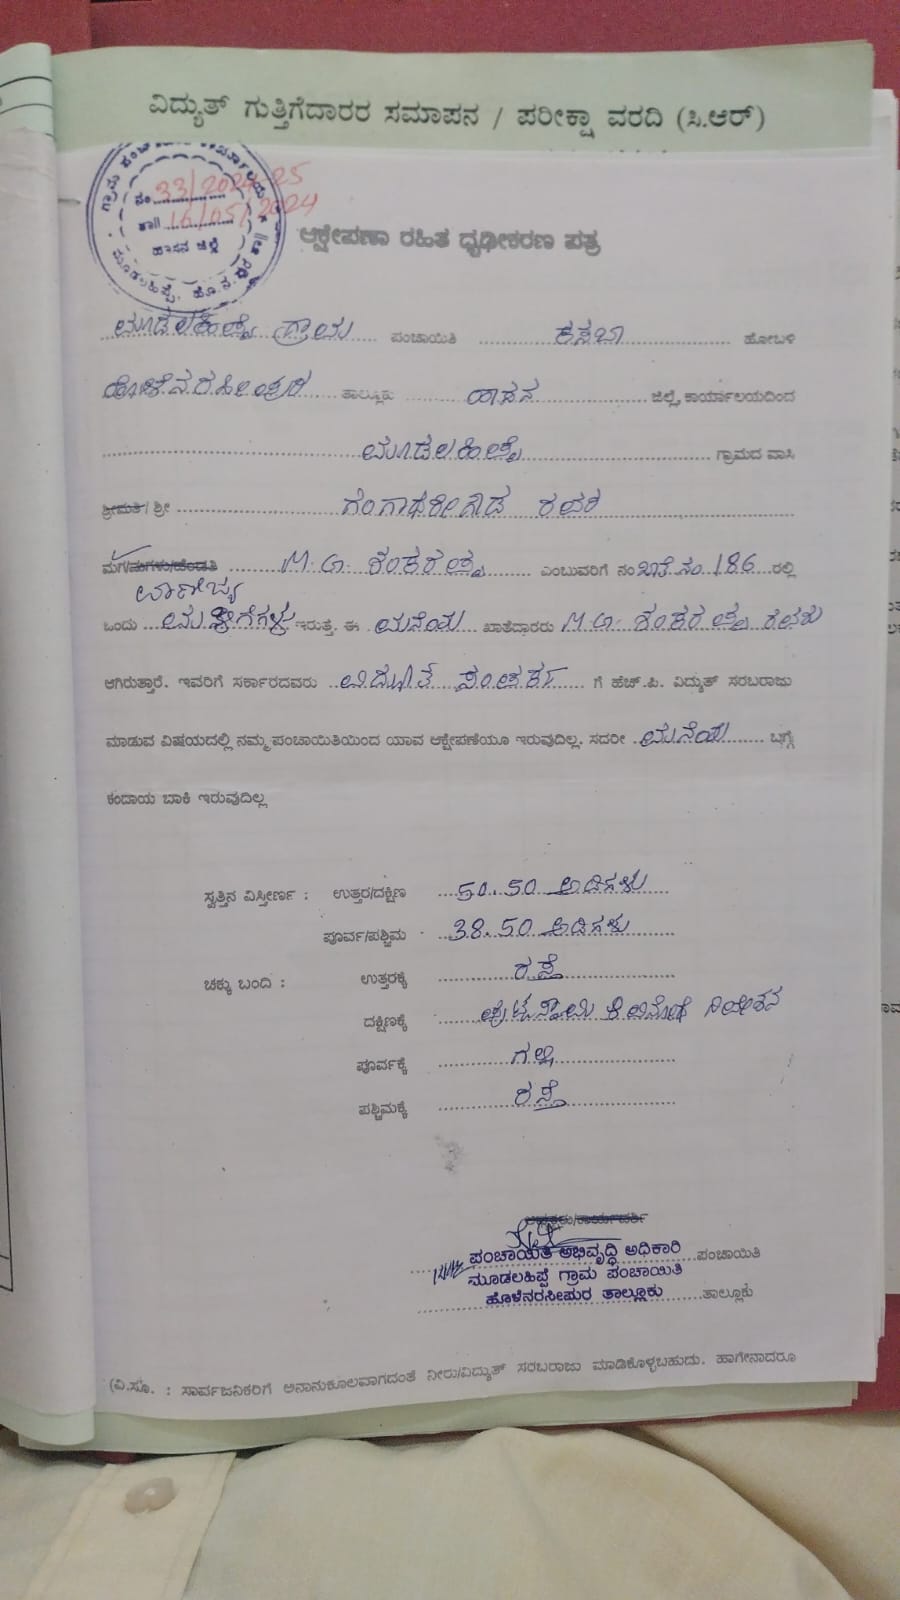 ವಿದ್ಯುತ್ ಗುತ್ತಿಗೆದಾರರ ಸಮಾಪನ / ಪರೀಕ್ಷಾ ವರದಿ (ಸಿ.ಆರ್)
ನಂ 33/2024-25
ತಾ|| 16/05/2024
ಹಾಸನ ಜಿಲ್ಲೆ
ಆಕ್ಷೇಪಣಾ ರಹಿತ ಧೃಢೀಕರಣ ಪತ್ರ
ಮೂಡಲಹಿಪ್ಪೆ ಗ್ರಾಮ ಪಂಚಾಯಿತಿ ಕಸಬಾ ಹೋಬಳಿ
ಹೊಳೆನರಸೀಪುರ ತಾಲ್ಲೂಕು ಹಾಸನ ಜಿಲ್ಲೆ, ಕಾರ್ಯಾಲಯದಿಂದ
ಮೂಡಲಹಿಪ್ಪೆ ಗ್ರಾಮದ ವಾಸಿ
ಶ್ರೀಮತಿ/ ಶ್ರೀ ಗಂಗಾಧರೇಗೌಡ ರವರ
ಮಗ/ಮಗಳು/ಹೆಂಡತಿ M.G. ಶಂಕರಪ್ಪ ಎಂಬುವರಿಗೆ ನಂ ಖಾತೆ ನಂ 186 ರಲ್ಲಿ
ವಾಣಿಜ್ಯ
ಒಂದು ಮಳಿಗೆಗಳು ಇರುತ್ತೆ. ಈ ಮನೆಯ ಖಾತೆದಾರರು M.G. ಶಂಕರಪ್ಪ ರವರು
ಆಗಿರುತ್ತಾರೆ. ಇವರಿಗೆ ಸರ್ಕಾರದವರು ವಿದ್ಯುತ್ ಸಂಪರ್ಕ ಗೆ ಹೆಚ್.ಪಿ. ವಿದ್ಯುತ್ ಸರಬರಾಜು
ಮಾಡುವ ವಿಷಯದಲ್ಲಿ ನಮ್ಮ ಪಂಚಾಯಿತಿಯಿಂದ ಯಾವ ಆಕ್ಷೇಪಣೆಯೂ ಇರುವುದಿಲ್ಲ. ಸದರೀ ಮನೆಯ ಬಗ್ಗೆ
ಕಂದಾಯ ಬಾಕಿ ಇರುವುದಿಲ್ಲ
ಸ್ವತ್ತಿನ ವಿಸ್ತೀರ್ಣ : ಉತ್ತರ/ದಕ್ಷಿಣ 50.50 ಅಡಿಗಳು
ಪೂರ್ವ/ಪಶ್ಚಿಮ 38.50 ಅಡಿಗಳು
ಚಕ್ಕು ಬಂದಿ : ಉತ್ತರಕ್ಕೆ ರಸ್ತೆ
ದಕ್ಷಿಣಕ್ಕೆ ಪುಟ್ಟಸ್ವಾಮಿ ನಿವೇಶನ
ಪೂರ್ವಕ್ಕೆ ಗಲ್ಲಿ
ಪಶ್ಚಿಮಕ್ಕೆ ರಸ್ತೆ
ಪಂಚಾಯಿತಿ ಅಭಿವೃದ್ಧಿ ಅಧಿಕಾರಿ ಪಂಚಾಯಿತಿ
ಮೂಡಲಹಿಪ್ಪೆ ಗ್ರಾಮ ಪಂಚಾಯಿತಿ
ಹೊಳೆನರಸೀಪುರ ತಾಲ್ಲೂಕು ತಾಲ್ಲೂಕು
(ವಿ.ಸೂ. : ಸಾರ್ವಜನಿಕರಿಗೆ ಅನಾನುಕೂಲವಾಗದಂತೆ ನೀರು/ವಿದ್ಯುತ್ ಸರಬರಾಜು ಮಾಡಿಕೊಳ್ಳಬಹುದು. ಹಾಗೇನಾದರೂ